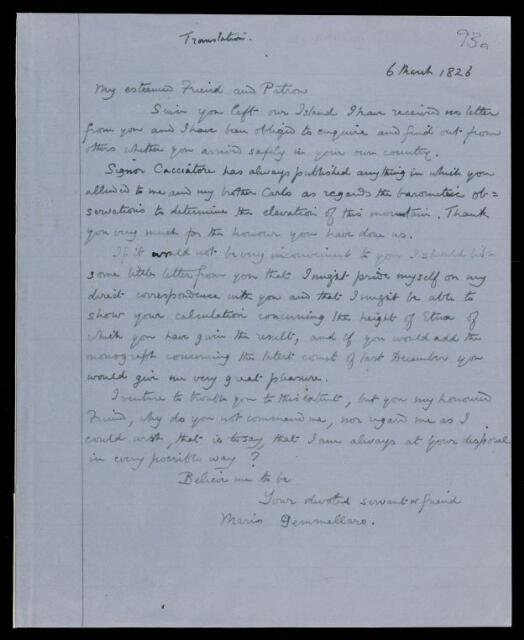 Translation.
93a
6 March 1826
My esteemed Friend and Patron
Since you left our Island I have received no letter
from you and I have been obliged to enquire and find out from
others whether you arrived safely in your own country.
Signor Cacciatore has always published anything in which you
alluded to me and my brother Carlo as regards the barometric ob=
servations to determine the elevation of this mountain. Thank
you very much for the honour you have done us.
If it would not be very inconvenient to you I should like
some little letter from you that I might pride myself on my
direct correspondence with you and that I might be able to
show your calculation concerning the height of Etna of
which you have given the result, and if you would add the
monograph concerning the latest comet of last December you
would give me very great pleasure.
I venture to trouble you to this extent, but you my honoured
Friend, why do you not command me, nor regard me as I
could wish, that is to say, that I am always at your disposal
in every possible way?
Believe me to be
Your devoted servant & friend
Mario Gemmellaro.